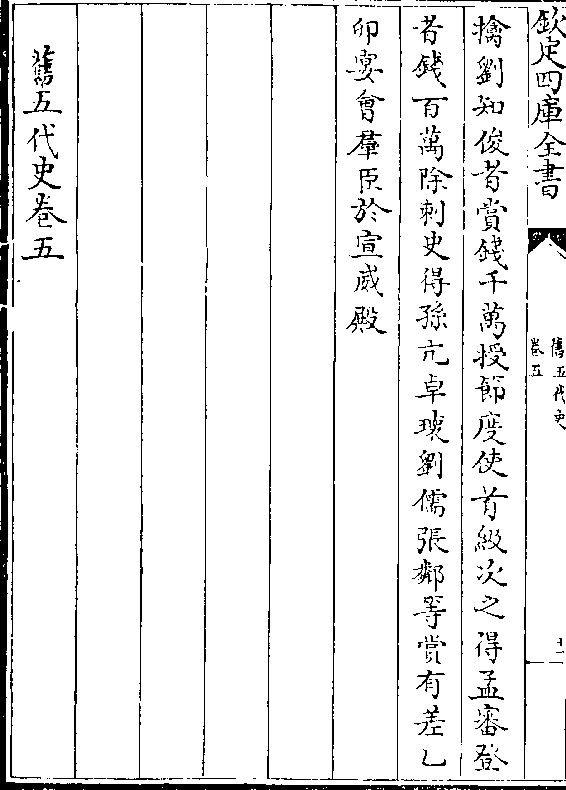 欽定四庫全書
舊五代史
卷五
十一
擒劉知俊者賞錢千萬授節度使首級次之得孟審登
者錢百萬除刺史得孫亢卓瓌劉儒張鄰等賞有差乙
卯宴會羣臣於宣威殿
舊五代史卷五